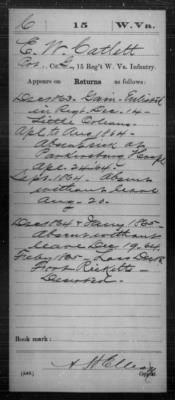 C 15 W.Va.
E. W. Catlett
Co. G, 15 Reg't W. Va. Infantry.
Appears on Returns as follows:
Dec 1863. Gain - Enlisted
in Regt. Dec. 14 -
Little Orleans.
Apl. to Aug 1864 -
Absent sick at
Parkersburg Hosp.
Apl. 24. 64.
Sept. 1864 - Absent
without leave
Aug. 20.
Dec 1864 & Jany 1865 -
Absent without
leave Dec 19, 64.
Feby 1865 - Loss Dec 8
Fort Ricketts -
Deserted.
Book mark:
(546)
Copyist.